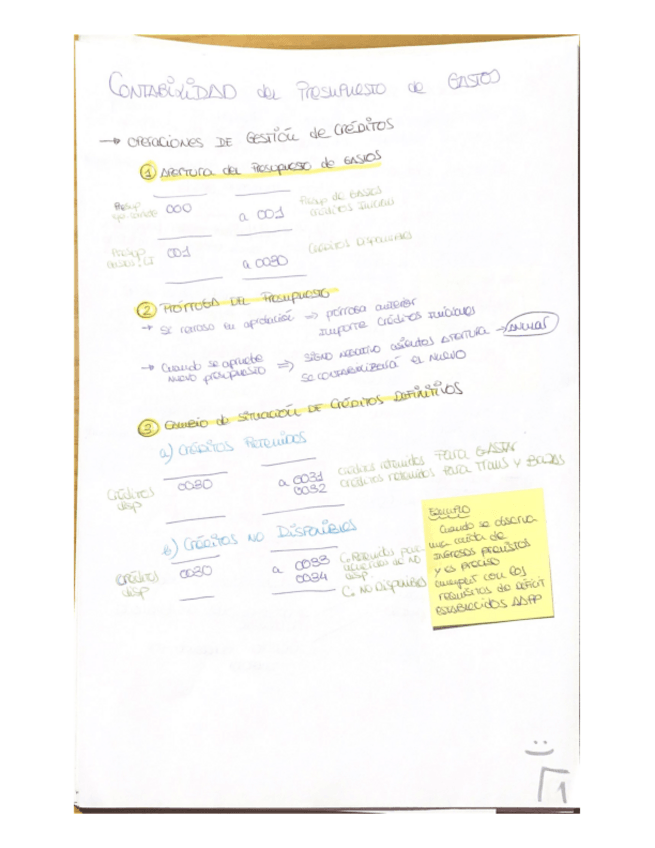 CONTABILIDAD del PRESUPUESTO de GASTOS
→ OPERACIONES DE GESTIÓN de CRÉDITOS
1 APERTURA del PRESUPUESTO de GASTOS
Presup
000
a 001
Presup de GASTOS
CRÉDITOS INICIALES
001
a 0030
CRÉDITOS DISPONIBLES
2 PRÓRROGA DEL PRESUPUESTO
→ Se retrasa su aprobación ⇒ prórroga anterior
IMPORTE CRÉDITOS INICIALES
→ Cuando se apruebe
NUEVO PRESUPUESTO ⇒ SIGNO NEGATIVO ASIENTOS APERTURA → ANULAR
SE CONTABILIZARÁ el NUEVO
3 CAMBIO de SITUACIÓN DE CRÉDITOS DEFINITIVOS
a) CRÉDITOS RETENIDOS
CRÉDITOS
disp
0030
a 0031
0032
CRÉDITOS retenidos PARA GASTAR
CRÉDITOS retenidos PARA TRANS y BAJAS
b) CRÉDITOS NO DISPONIBLES
CRÉDITOS
disp
0030
a 0033
0034
C. Retenidos para
acuerdos de NO
disp
C. NO DISPONIBLES
EJEMPLO
Cuando se observa
una caída de
INGRESOS PREVISTOS
y es preciso
cumplir con los
REQUISITOS de DÉFICIT
ESTABLECIDOS AAPP
1